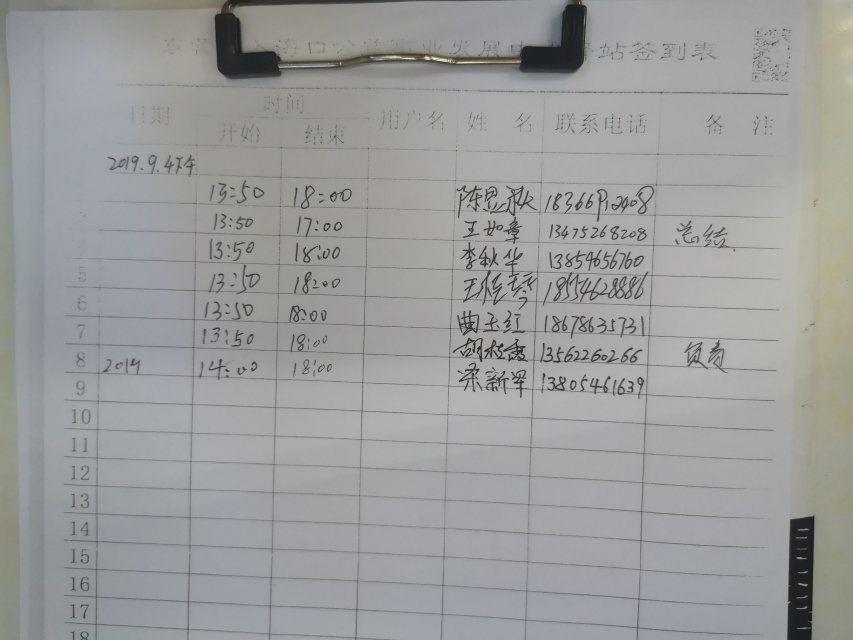 海口公益事业发展中 站签到表
日期 时间 用户名 姓名 联系电话 备注
开始 结束
2019.9.4下午
13:50 18:00 陈 18366912408
13:50 17:00 王如章 13475268208 总结
13:50 18:00 李秋华 13854656760
5 13:50 18:00 王 18554628886
6 13:50 18:00 曲玉红 18678635731
7 13:50 18:00 胡 霞 13562260266 负责
8 2019 14:00 18:00 梁新军 13805461639
9
10
11
12
13
14
15
16
17
18